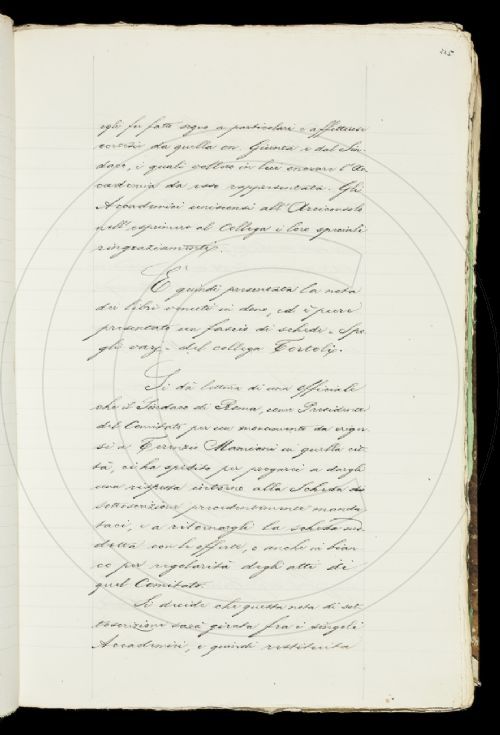 315
egli fu fatto segno a particolari e affettuose
cortesie da quella on. Giunta e dal Sin-
daco, i quali vollero in lui onorare l'Ac-
cademia da esso rappresentata. Gli
Accademici unisconsi all'Arciconsolo
nell'esprimere al Collega i loro speciali
ringraziamenti.
È quindi presentata la nota
dei libri venuti in dono, ed è pure
presentato un fascio di schede e Spo-
gli varj del collega Tortoli.
Si dà lettura di una Officiale
che il Sindaco di Roma, come Presidente
del Comitato per un monumento da eriger-
si a Terenzio Mamiani in quella cit-
tà, ci ha spedito per pregarci a dargli
una risposta intorno alla Scheda di
sottoscrizione precedentemente manda-
taci, e a ritornargli la scheda sud-
detta con le offerte, o anche in bian-
co per regolarità degli atti di
quel Comitato.
Si decide che questa nota di sot-
toscrizione sarà girata fra i singoli
Accademici, e quindi restituita